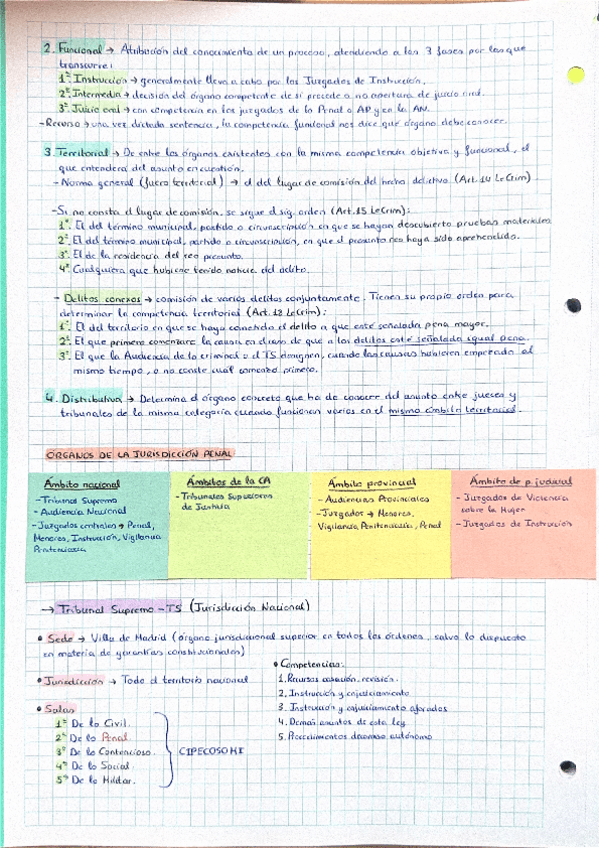 2. Funcional → Atribución del conocimiento de un proceso, atendiendo a las 3 fases por las que
transcurre:
1º. Instrucción → generalmente lleva a cabo por los Juzgados de Instrucción.
2º. Intermedia → decisión del órgano competente de si procede o no apertura de juicio oral.
3º. Juicio oral → con competencia en los juzgados de lo Penal o AP y en la AN.
- Recurso → una vez dictada sentencia, la competencia funcional nos dice qué órgano debe conocer.
3. Territorial → De entre los órganos existentes con la misma competencia objetiva y funcional, el
que entenderá del asunto en cuestión.
- Norma general (fuero territorial) → el del lugar de comisión del hecho delictivo (Art. 14 LeCrim)
- Si no consta el lugar de comisión, se sigue el sig. orden (Art. 15 LeCrim):
1º. El del término municipal, partido o circunscripción en que se hayan descubierto pruebas materiales
2º. El del término municipal, partido o circunscripción, en que el presunto reo haya sido aprehendido.
3º. El de la residencia del reo presunto.
4º. Cualquiera que hubiese tenido noticia del delito.
- Delitos conexos → comisión de varios delitos conjuntamente. Tienen su propio orden para
determinar la competencia territorial (Art. 18 LeCrim):
1º. El del territorio en que se haya cometido el delito a que esté señalada pena mayor.
2º. El que primero comenzare la causa en el caso de que a los delitos esté señalada igual pena.
3º. El que la Audiencia de lo criminal o el TS designen, cuando las causas hubieren empezado al
mismo tiempo, o no conste cuál comenzó primero.
4. Distributiva → Determina el órgano concreto que ha de conocer del asunto entre jueces y
tribunales de la misma categoría cuando funcionan varios en el mismo ámbito territorial.
ÓRGANOS DE LA JURISDICCIÓN PENAL
Ámbito nacional
- Tribunal Supremo
- Audiencia Nacional
- Juzgados centrales → Penal,
Menores, Instrucción, Vigilancia
Penitenciaria
Ámbitos de la CA
- Tribunales Superiores
de Justicia
Ámbito provincial
- Audiencias Provinciales
- Juzgados → Menores,
Vigilancia Penitenciaria, Penal
Ámbito de p. judicial
- Juzgados de Violencia
sobre la Mujer
- Juzgados de Instrucción
→ Tribunal Supremo - TS (Jurisdicción Nacional)
• Sede → Villa de Madrid (órgano jurisdiccional superior en todos los órdenes, salvo lo dispuesto
en materia de garantías constitucionales)
• Jurisdicción → Todo el territorio nacional
• Salas
1º De lo Civil.
2º De lo Penal.
3º De lo Contencioso.
4º De lo Social.
5º De lo Militar.
CIPECOSOMI
• Competencias:
1. Recursos casación, revisión.
2. Instrucción y enjuiciamiento
3. Instrucción y enjuiciamiento aforados
4. Demás asuntos de esta ley
5. Procedimientos decomiso autónomo